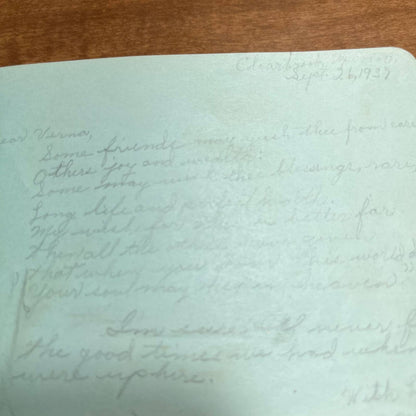 Clearbrook
Sept. 26, 1937
ear Verna,
Some friends may wish thee from care
Others joy and wealth.
Some may wish thee blessings, rare,
Long life and health.
My wish for thee is better far
Then all the others
That when you this world
Your soul may in heaven
I'm sure I'll never f
the good times we had when
were up here.
With